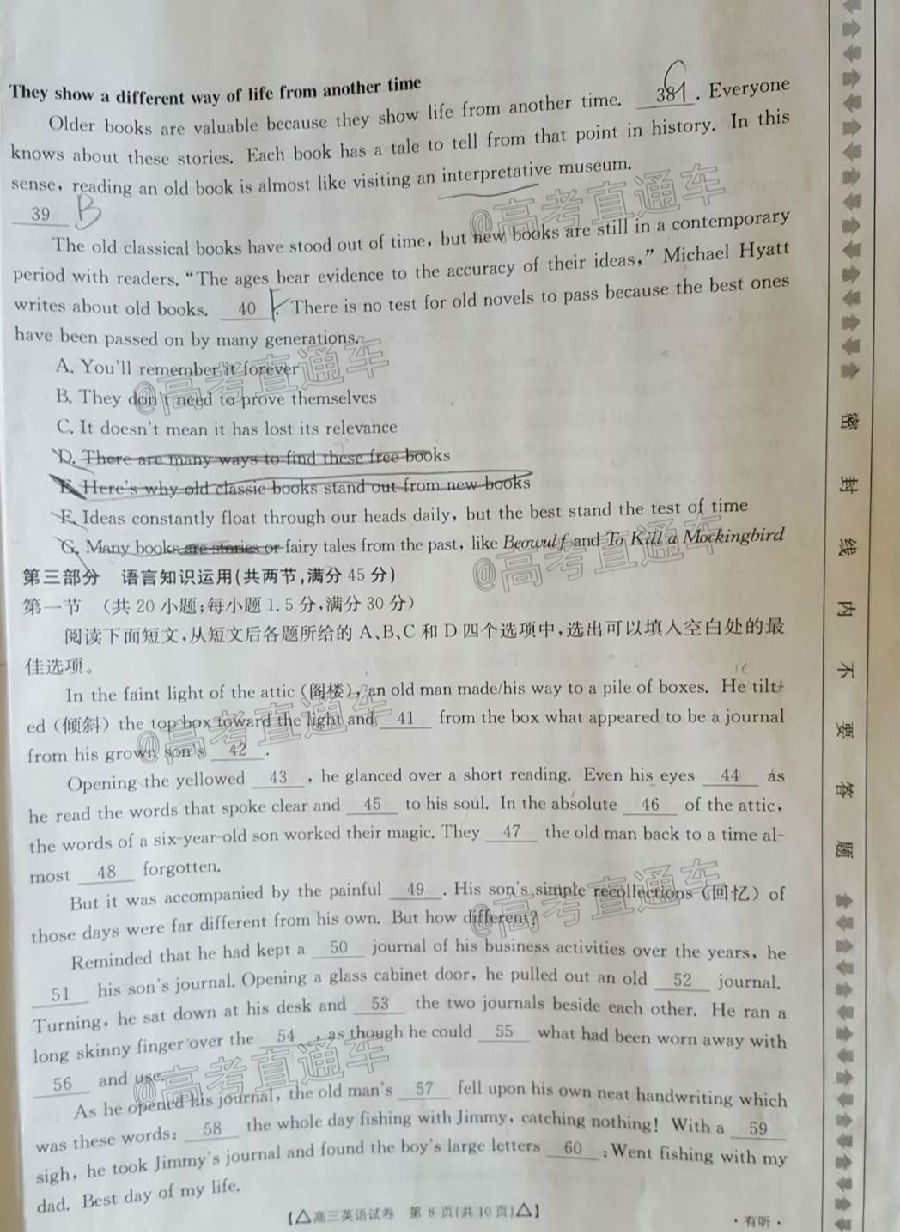 They show a different way of life from another time
Older books are valuable because they show life from another time. 38 . Everyone
knows about these stories. Each book has a tale to tell from that point in history. In this
sense, reading an old book is almost like visiting an interpretative museum.
39 B
The old classical books have stood out of time, but new books are still in a contemporary
period with readers. “The ages bear evidence to the accuracy of their ideas,” Michael Hyatt
writes about old books. 40 . There is no test for old novels to pass because the best ones
have been passed on by many generations.
A. You'll remember it forever
B. They don't need to prove themselves
C. It doesn't mean it has lost its relevance
D. There are many ways to find these free books
E. Here's why old classic books stand out from new books
F. Ideas constantly float through our heads daily, but the best stand the test of time
G. Many books are stories or fairy tales from the past, like Beowulf and To Kill a Mockingbird
第三部分 语言知识运用(共两节,满分 45 分)
第一节 (共 20 小题;每小题 1.5 分,满分 30 分)
阅读下面短文,从短文后各题所给的 A、B、C 和 D 四个选项中,选出可以填入空白处的最
佳选项。
In the faint light of the attic (阁楼), an old man made his way to a pile of boxes. He tilt-
ed (倾斜) the top box toward the light and 41 from the box what appeared to be a journal
from his grown son's 42 .
Opening the yellowed 43 , he glanced over a short reading. Even his eyes 44 as
he read the words that spoke clear and 45 to his soul. In the absolute 46 of the attic,
the words of a six-year-old son worked their magic. They 47 the old man back to a time al-
most 48 forgotten.
But it was accompanied by the painful 49 . His son's simple recollections (回忆) of
those days were far different from his own. But how different?
Reminded that he had kept a 50 journal of his business activities over the years, he
51 his son's journal. Opening a glass cabinet door, he pulled out an old 52 journal.
Turning, he sat down at his desk and 53 the two journals beside each other. He ran a
long skinny finger over the 54 , as though he could 55 what had been worn away with
56 and use.
As he opened his journal, the old man's 57 fell upon his own neat handwriting which
was these words: 58 the whole day fishing with Jimmy, catching nothing! With a 59
sigh, he took Jimmy's journal and found the boy's large letters 60 : Went fishing with my
dad. Best day of my life.
【△高三英语试卷 第 8 页(共 10 页)△】
·有听·
密封线内不要答题
@高考直通车
@高考直通车
@高考直通车
@高考直通车
@高考直通车
@高考直通车
@高考直通车